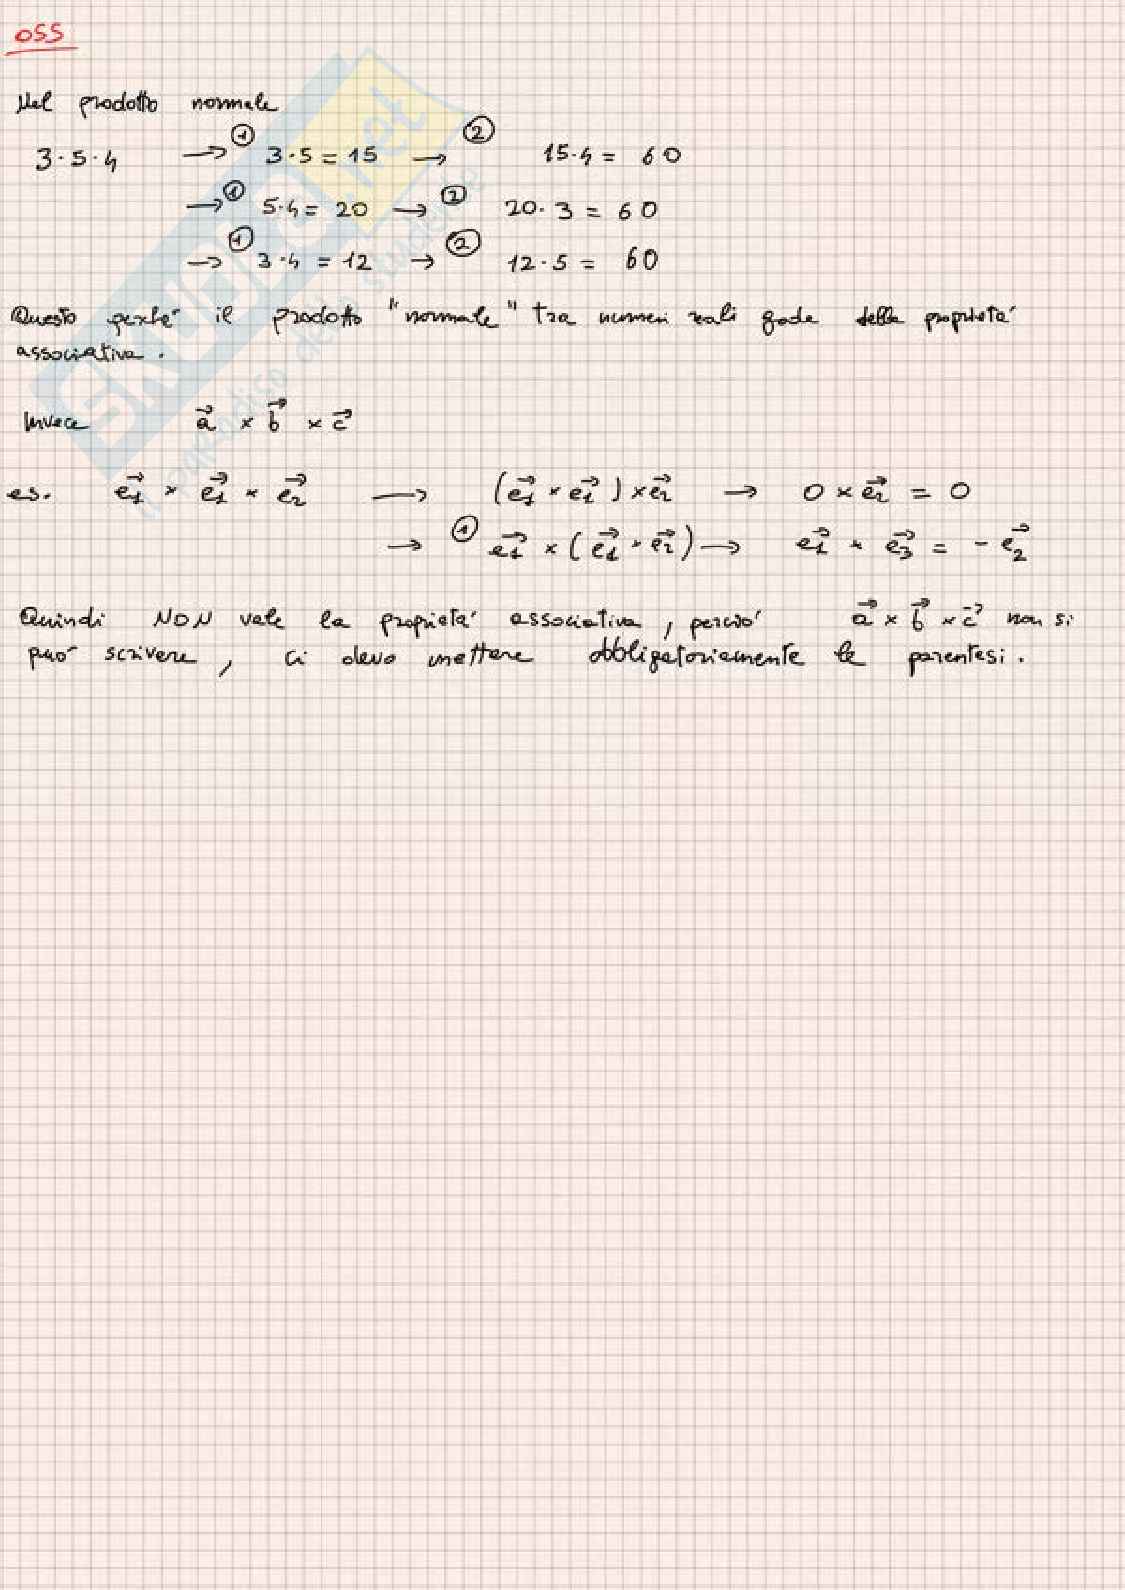 OSS
Nel prodotto normale
3·5·4 → ① 3·5 = 15 → ② 15·4 = 60
→ ① 5·4 = 20 → ② 20·3 = 60
→ ① 3·4 = 12 → ② 12·5 = 60
Questo perché il prodotto "normale" tra numeri reali gode della proprietà
associativa.
Invece a⃗ × b⃗ × c⃗
es. e₁⃗ × e₁⃗ × e₂⃗ → (e₁⃗ × e₁⃗) × e₂⃗ → 0 × e₂⃗ = 0
→ ① e₁⃗ × (e₁⃗ × e₂⃗) → e₁⃗ × e₃⃗ = - e₂⃗
Quindi NON vale la proprietà associativa, perciò a⃗ × b⃗ × c⃗ non si
può scrivere, ci devo mettere obbligatoriamente le parentesi.
SKUOLA.net
il paradiso dello studente